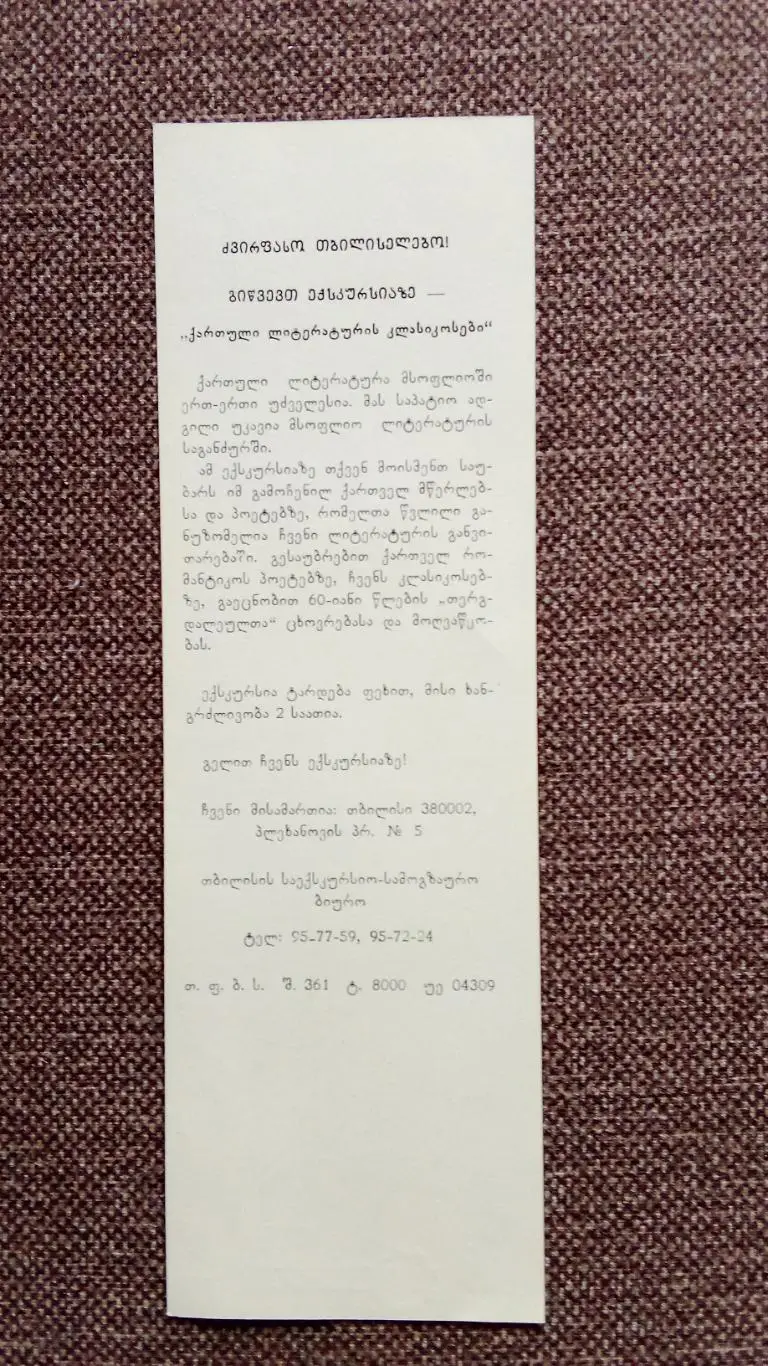 ძვირფასო თბილისელებო!
გიწვევთ ექსკურსიაზე —
„ქართული ლიტერატურის კლასიკოსები“
ქართული ლიტერატურა მსოფლიოში
ერთ-ერთი უძველესია. მას საპატიო ად-
გილი უკავია მსოფლიო ლიტერატურის
საგანძურში.
ამ ექსკურსიაზე თქვენ მოისმენთ საუ-
ბარს იმ გამოჩენილ ქართველ მწერლებ-
სა და პოეტებზე, რომელთა წვლილი გა-
ნუზომელია ჩვენი ლიტერატურის განვი-
თარებაში. გესაუბრებით ქართველ რო-
მანტიკოს პოეტებზე, ჩვენს კლასიკოსებ-
ზე, გაეცნობით 60-იანი წლების „თერგ-
დალეულთა“ ცხოვრებასა და მოღვაწეო-
ბას.
ექსკურსია ტარდება ფეხით, მისი ხან-
გრძლივობა 2 საათია.
გელით ჩვენს ექსკურსიაზე!
ჩვენი მისამართია: თბილისი 380002,
პლეხანოვის პრ. № 5
თბილისის საექსკურსიო-სამოგზაურო
ბიურო
ტელ: 95-77-59, 95-72-24
თ. ფ. ბ. ს. შ. 361 ტ. 8000 უე 04309